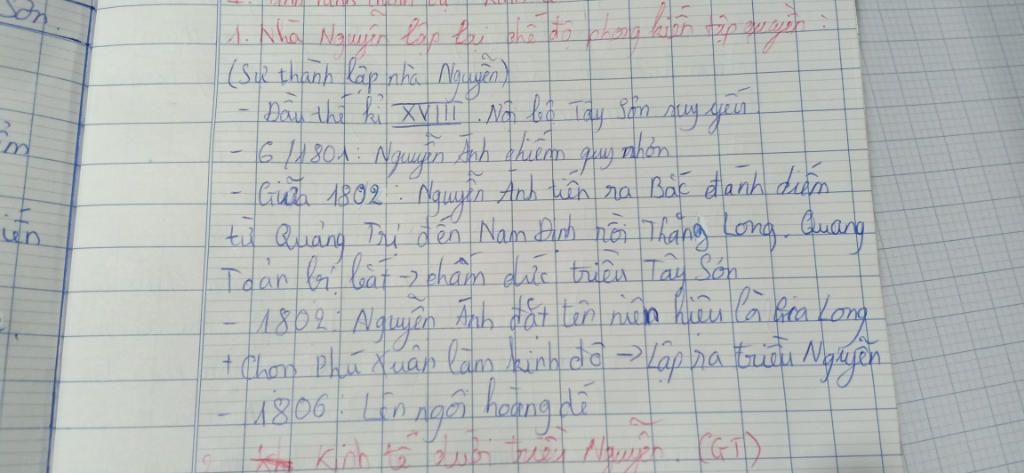 Sơn.
1. Nhà Nguyễn lập lại chế độ phong kiến tập quyền:
(Sự thành lập nhà Nguyễn)
- Đầu thế kỉ XVIII. Nội bộ Tây Sơn suy yếu
- 6/1801: Nguyễn Ánh chiếm quy nhơn
- Giữa 1802: Nguyễn Ánh tiến ra Bắc đánh chiếm
từ Quảng Trị đến Nam Định rồi Thăng Long. Quang
Toản bị bắt → chấm dứt triều Tây Sơn
- 1802: Nguyễn Ánh đặt tên niên hiệu là Gia Long
+ Chọn Phú Xuân làm kinh đô → Lập ra triều Nguyễn
- 1806: Lên ngôi hoàng đế
Kinh tế dưới triều Nguyễn. (GT)